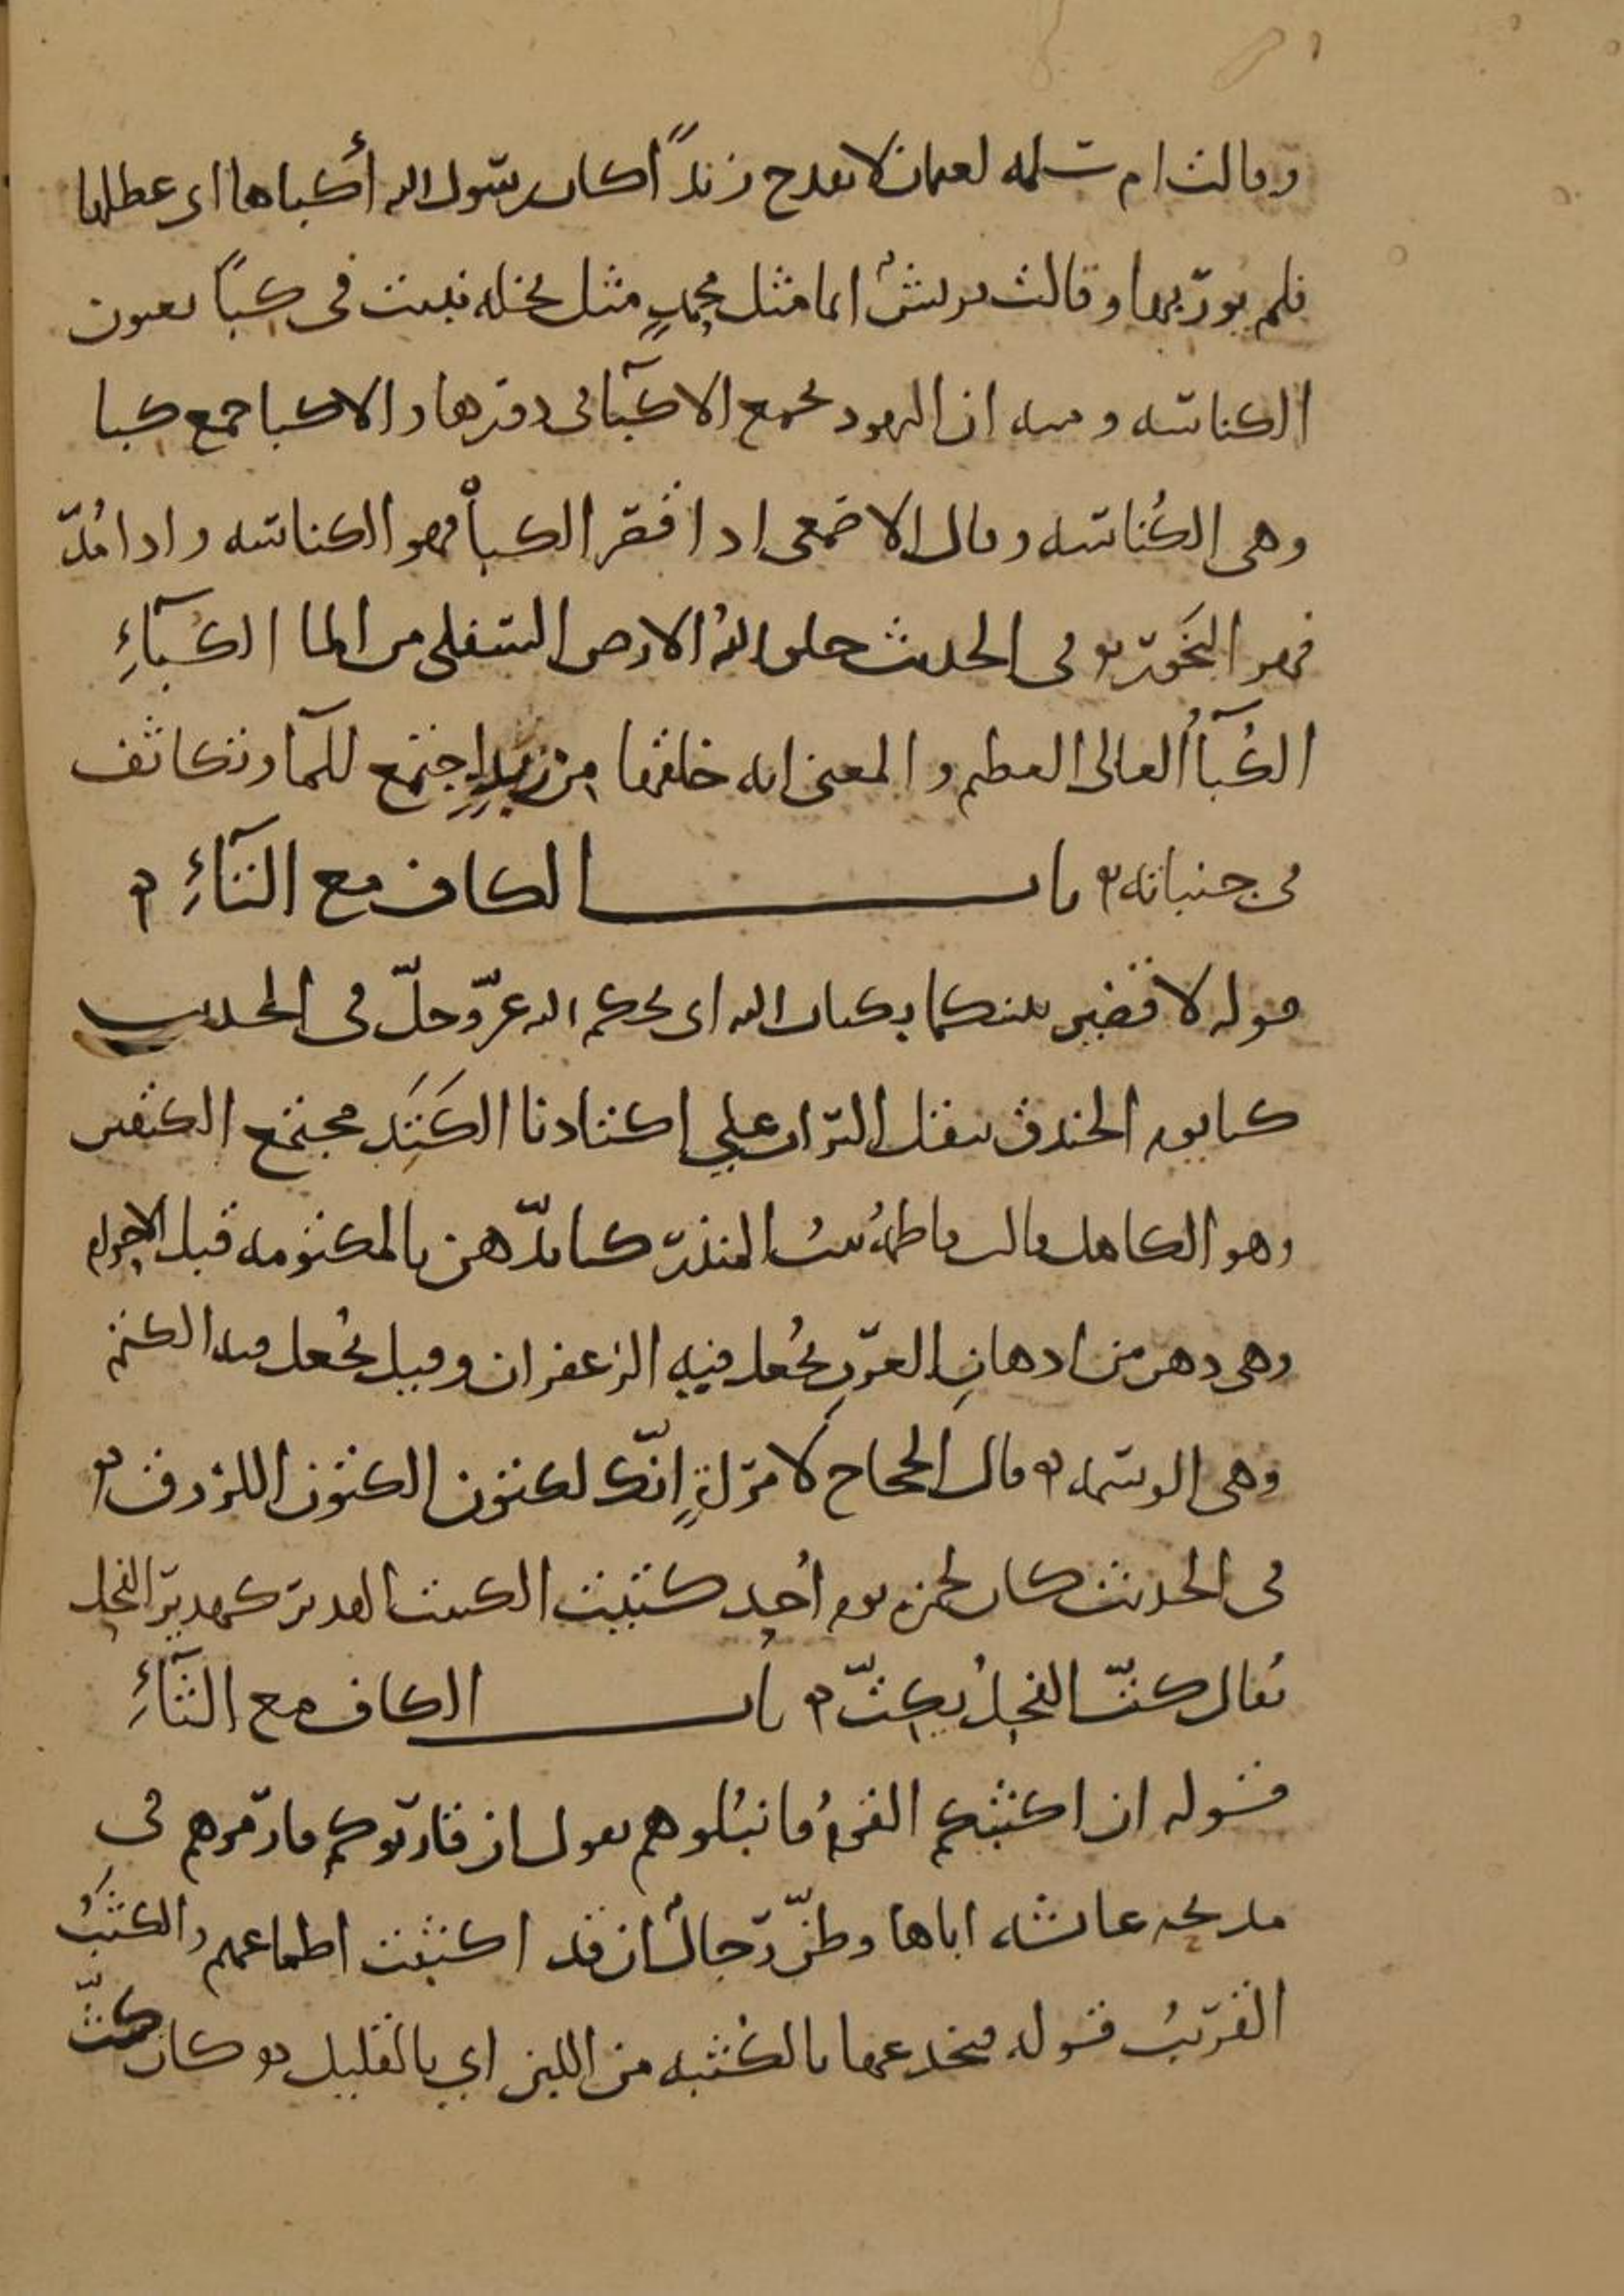 وقالت ام سلمه لعثمان لا تقدح زنداً كان رسول الله أكباها اى عطلها
فلم يور بها وقالت قريشٌ انما مثل محمدٍ مثل نخله نبتت فى كباً يعنون
الكناسه ومنه ان اليهود تجمع الاكبآ فى دورها والاكبا جمع كبا
وهى الكُناسه وقال الاصمعى اذا قصر الكبأ فهو الكناسه واذا مُدّ
فهو البَخور فى الحديث خلق اللهُ الارض السفلى من الما الكُبآءِ
الكُبآأُ العالى العظيم والمعنى انه خلقها من زبدٍ اجتمع للمآ وتكاثف
فى جنباته باب الكاف مع التآءِ
قوله لاقضين بينكما بكتاب الله اى بحكم الله عزّ وجلّ فى الحديث
كنا يوم الخندق ننقل التراب على اكتادنا الكَتَد مجتمع الكتفين
وهو الكاهل قالت فاطمهُ بنتُ المنذر كنا ندّهن بالمكتومه قبل الاحرام
وهى دهن من ادهانِ العربِ يُجعل فيه الزعفران وقيل يُجعل فيه الكتم
وهى الوسمه قال الحجاج لامرأةٍ انّك لكتون الكتون اللزوق
فى الحديث كان لحمزه يوم اُحد كتيت الكتيت الهدير كهدير الفحل
يُقال كتّ الفحلُ يكتّ باب الكاف مع الثآءِ
قوله ان اكثبكم القومُ فانبُلوهم يقول ان قاربوكم فارموهم فى
مديحه عائشه اباها وظنّ رجالٌ ان قد اكثبت اطماعهم والكثَبُ
القربُ قوله فيخدعها بالكُثبه من اللبن اي بالقليل كان كثّ